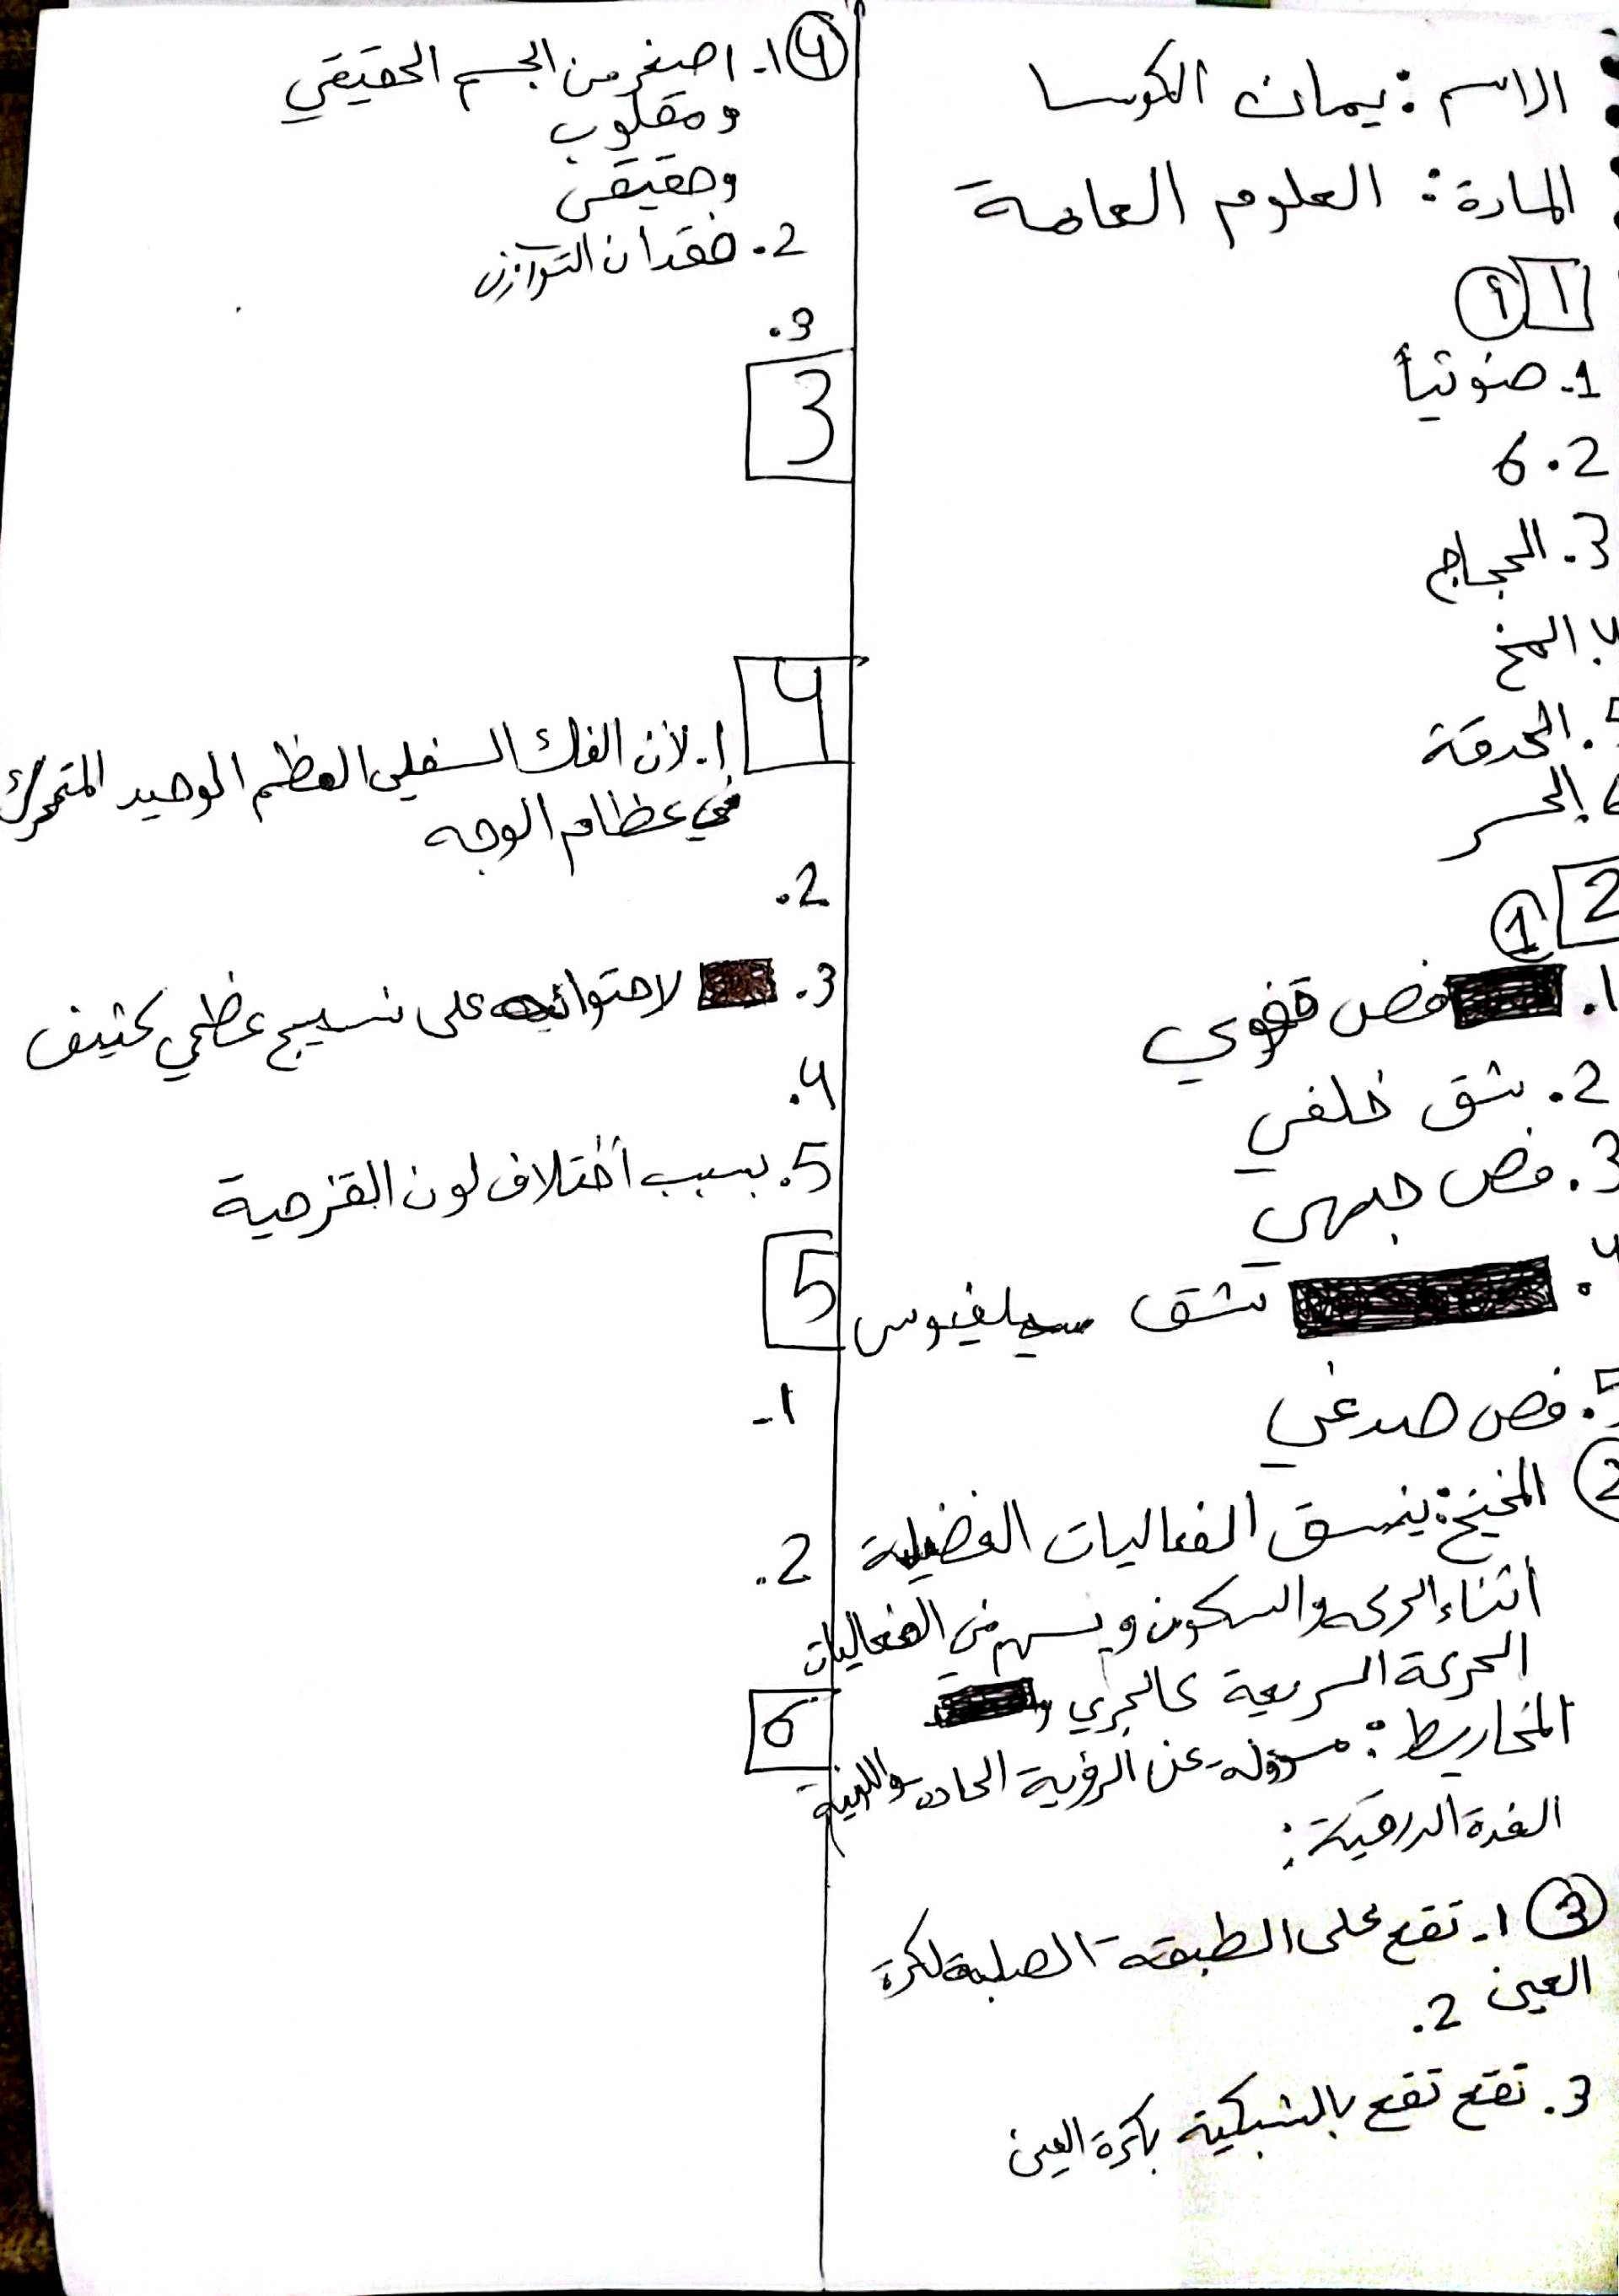 الاسم : يمان الكوسا
المادة : العلوم العامة
1 ①
1- ضوئياً
2. 6
3. الحجاج
4. المخ
5. الحدقة
6. الحسر
2 ①
1. فص قفوي
2. شق خلفي
3. فص جبهي
4. شق سيلفيوس
5. فص صدغي
② المخيخ: ينسق الفعاليات العضلية
أثناء الحركة والسكون ويسهم في الفعاليات
الحركة السريعة كالجري
المخاريط : مسؤولة عن الرؤية الحادة واللونية
الغدة الدرقية :
③ 1- تقع على الطبقة الصلبة لكرة
العين 2.
3. تقع تقع بالشبكية بكرة العين
④ 1- اصغر من الجسم الحقيقي
ومقلوب
وحقيقي
2. فقدان التوازن
3.
3
4
1. لأن الفك السفلي العظم الوحيد المتحرك
في عظام الوجه
2.
3. لاحتوائه على نسيج عظمي كثيف
4.
5. بسبب أختلاف لون القزحية
5
1-
2.
6